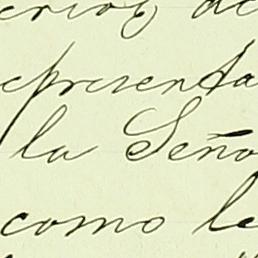 representa
la Seño
como le